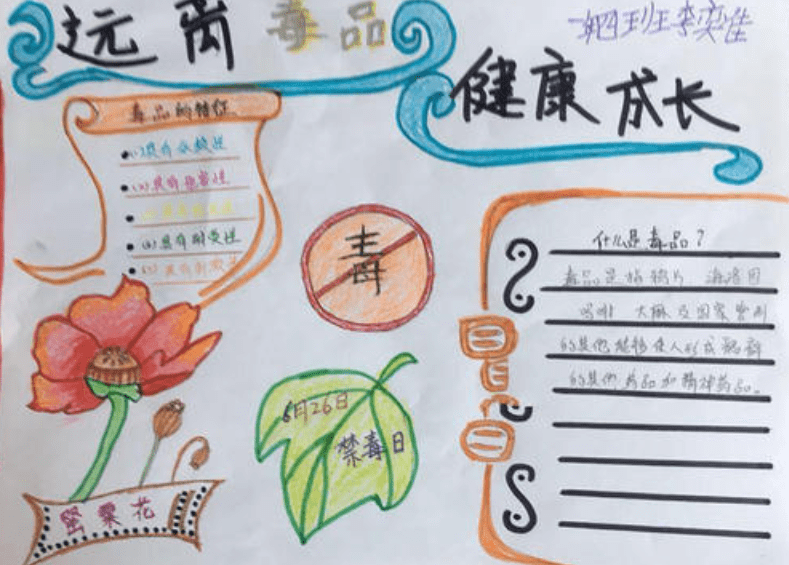 远离毒品
班李奕佳
健康成长
毒品的特征
(1)具有
(2)具有危害性
(4)具有耐受性
(5)具有
毒
什么是毒品?
毒品是指鸦片 海洛因
吗啡 大麻及国家管制
的其他能够使人形成瘾癖
的其他药品和精神药品。
6月26日
禁毒日
罂粟花